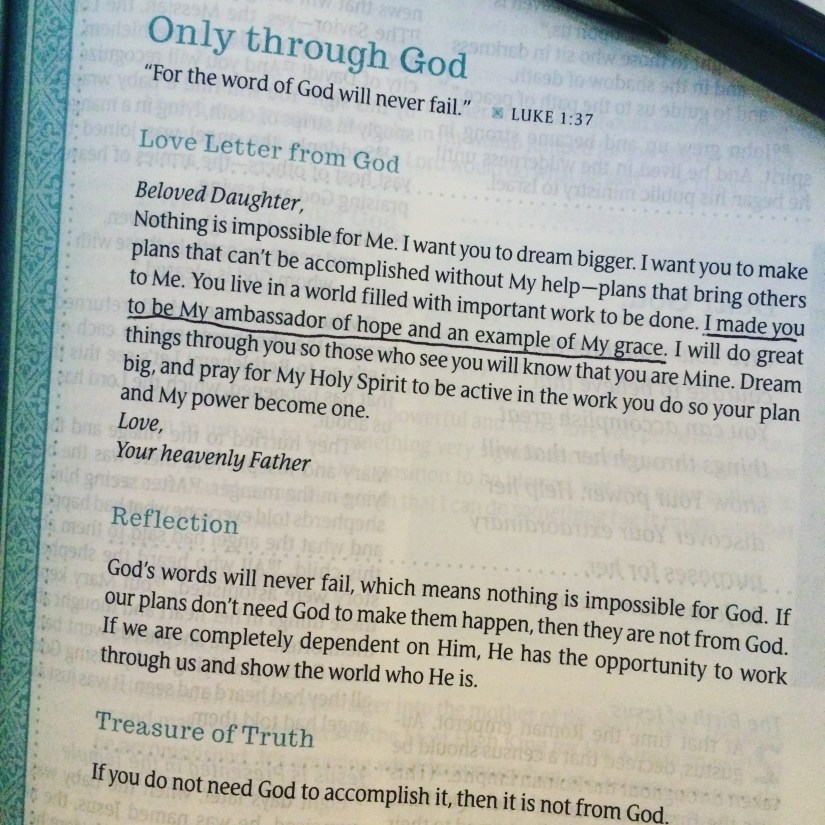 Only through God
“For the word of God will never fail.” LUKE 1:37
Love Letter from God
Beloved Daughter,
Nothing is impossible for Me. I want you to dream bigger. I want you to make
plans that can’t be accomplished without My help—plans that bring others
to Me. You live in a world filled with important work to be done. I made you
to be My ambassador of hope and an example of My grace. I will do great
things through you so those who see you will know that you are Mine. Dream
big, and pray for My Holy Spirit to be active in the work you do so your plan
and My power become one.
Love,
Your heavenly Father
Reflection
God’s words will never fail, which means nothing is impossible for God. If
our plans don’t need God to make them happen, then they are not from God.
If we are completely dependent on Him, He has the opportunity to work
through us and show the world who He is.
Treasure of Truth
If you do not need God to accomplish it, then it is not from God.